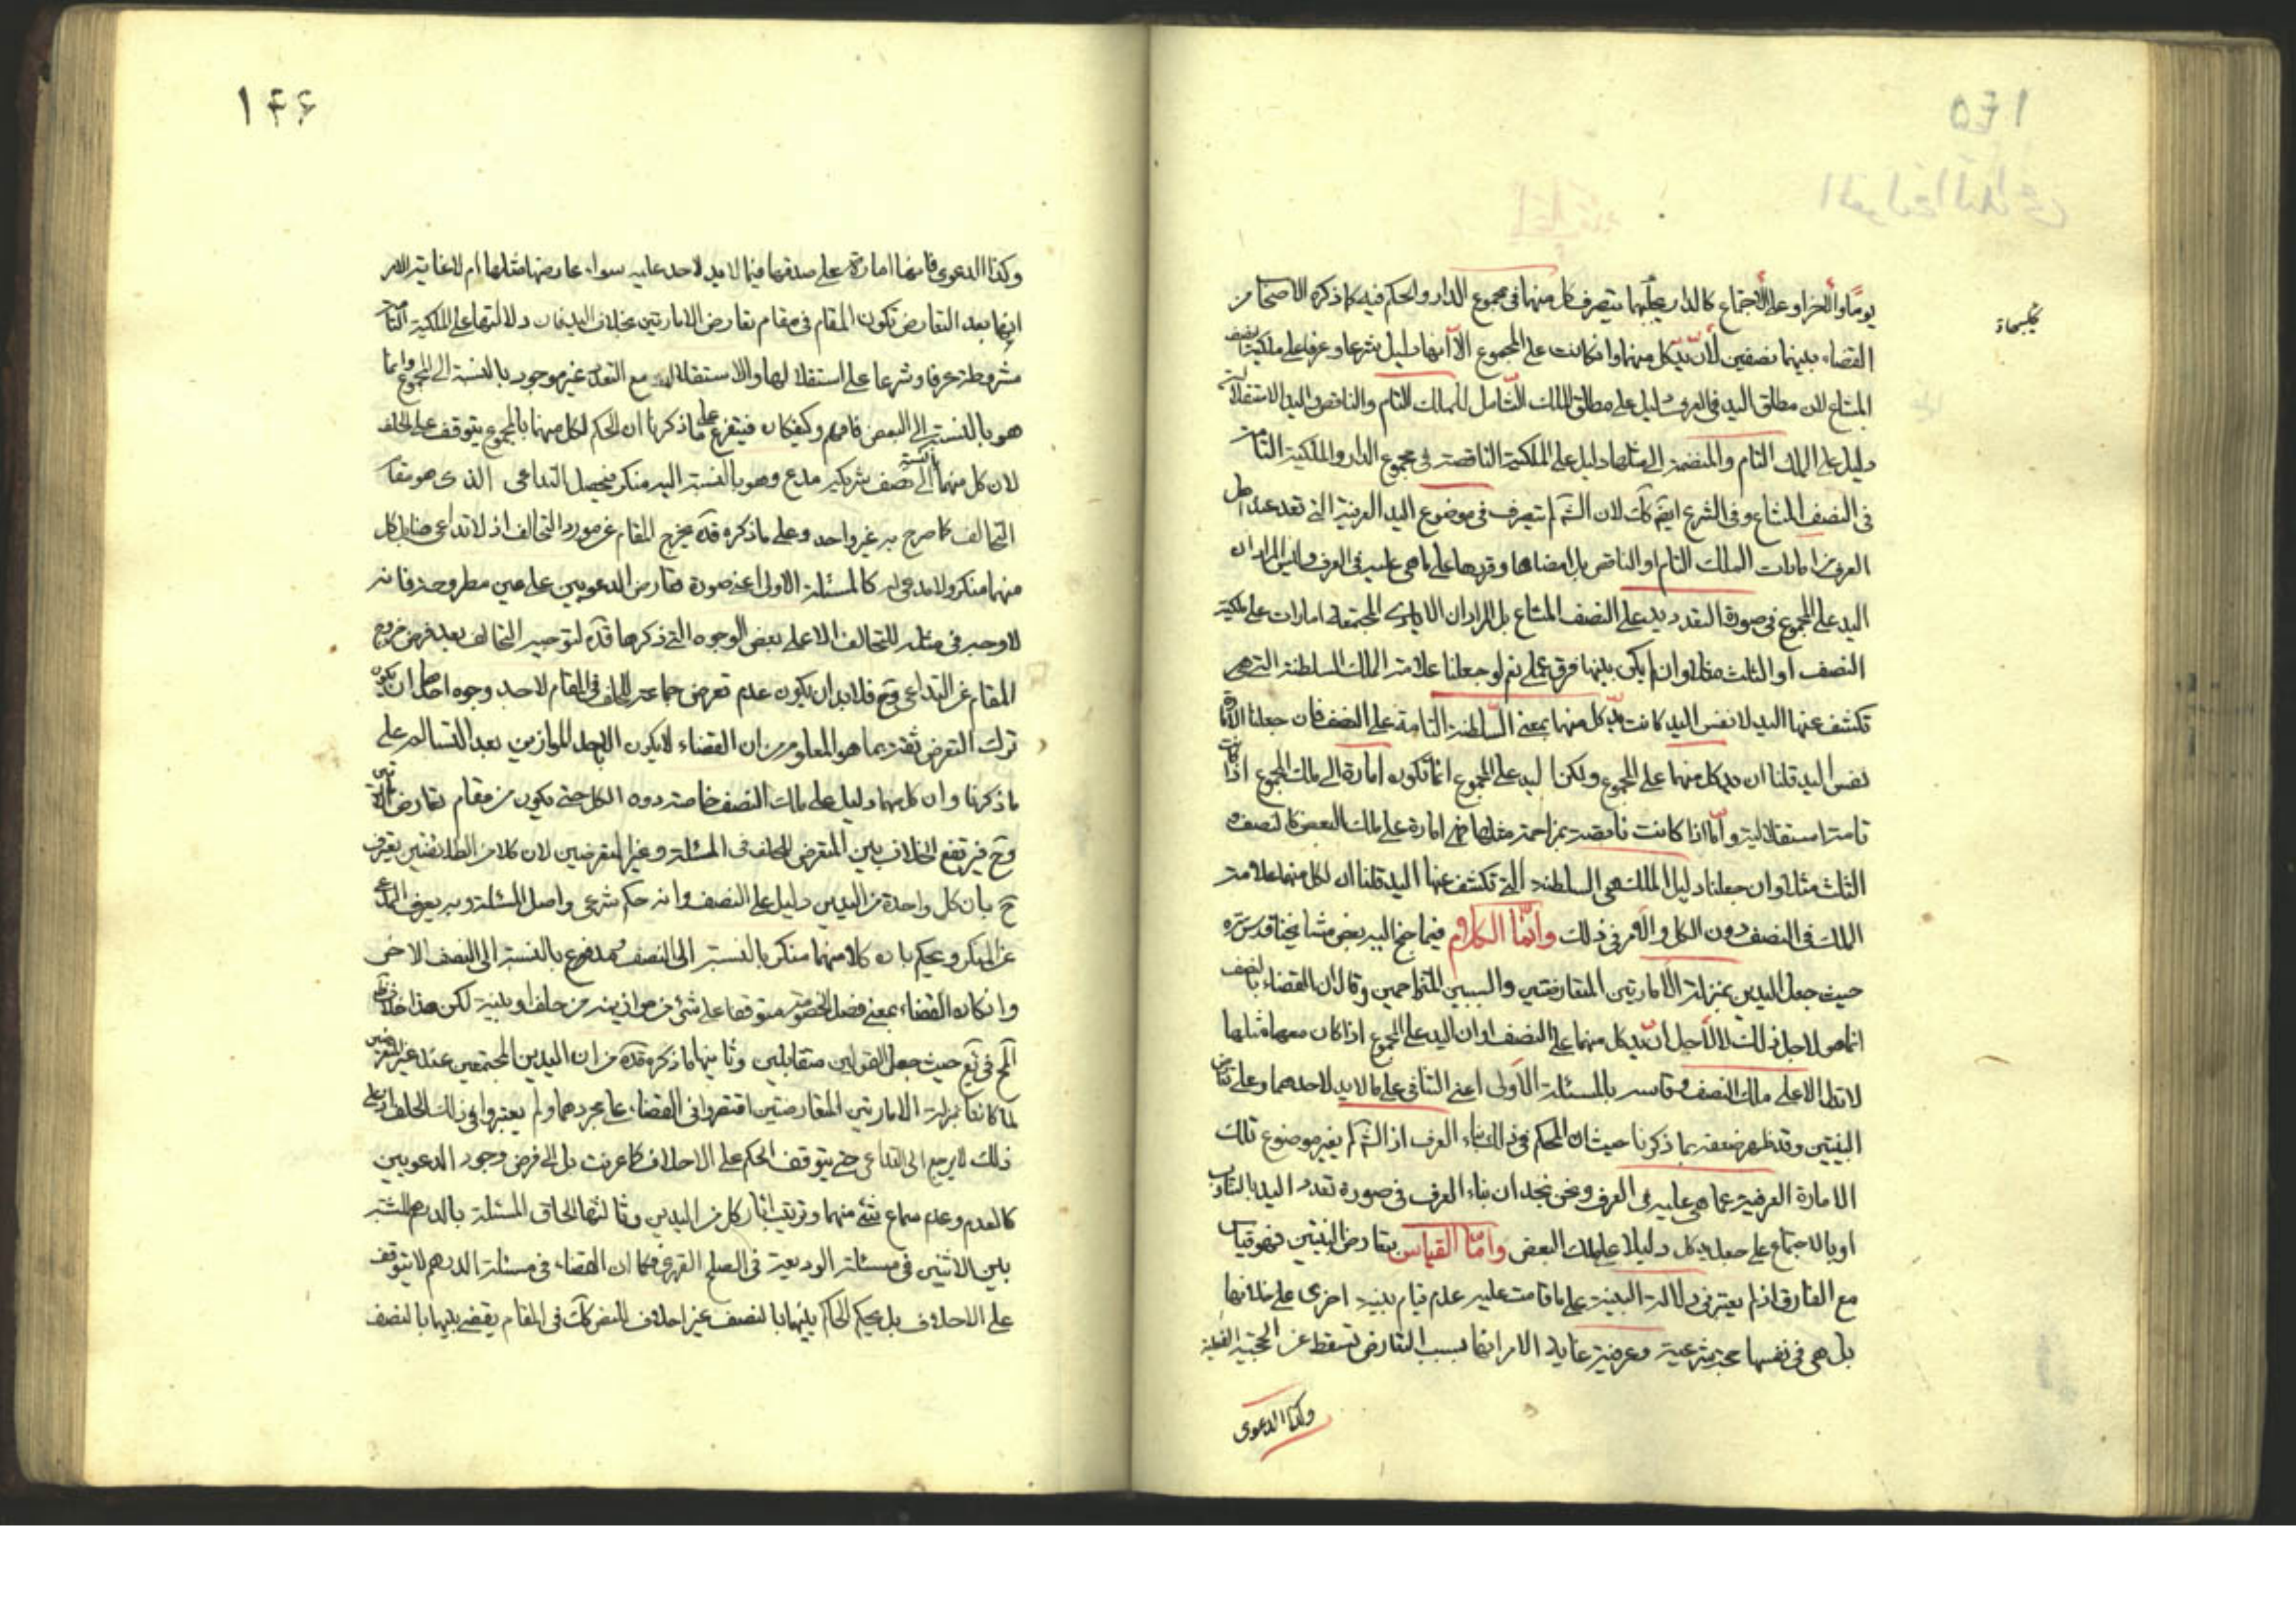 ١٤٥
يوما والاخر او على الاجتماع كالدار عليهما يتصرف كل منهما فى مجموع الدار والحكم فيه كما ذكره الاصحاب
القضاء بينهما نصفين لأن يد كل منهما وانكانت على المجموع الا انها دليل شرعا وعرفا على ملكية نصف
المشاع لان مطلق اليد فى العرف دليل على مطلق الملك الشامل للملك التام والناقص اليد الاستقلالية
دليل على الملك التام والمنضمة الى مثلها دليل على الملكية الناقصة فى مجموع الدار والملكية التامة
فى النصف المشاع وفى الشرع ايضم كك لان الشم لم يتصرف فى موضوع اليد العرفية التى تعد عند اهل
العرف من امارات الملك التام او الناقص بل امضاها وقررها على ما هى عليه فى العرف وليس المراد ان
اليد على المجموع فى صورة التعدد يد على النصف المشاع بل المراد ان الايادى المجتمعة امارات على ملكية
النصف او الثلث مثلا وان لم يكن بينهما فرق عملى نعم لو جعلنا علامة الملك السلطنة التى هى
تكشف عنها اليد لا نفس اليد كانت يد كل منهما بمعنى السلطنة التامة على النصف فان جعلنا الامارة
نفس اليد قلنا ان يد كل منهما على المجموع ولكن اليد على المجموع انما تكون امارة الى ملك المجموع اذا كانت
تامة استقلالية واما اذا كانت ناقصة بمزاحمة مثلها فهى امارة على ملك البعض كالنصف و
الثلث مثلا وان جعلنا دليل الملك هى السلطنة التى تكشف عنها اليد قلنا ان لكل منهما علامة
الملك فى النصف دون الكل والامر فى ذلك وانما الكلام فيما جنح اليه بعض مشايخنا قدس سره
حيث جعل اليدين بمنزلة الامارتين المتعارضتين والسببين المتزاحمين وقال ان القضاء بالنصف
انما هو لاجل ذلك لا لاجل ان يد كل منهما على النصف او ان اليد على المجموع اذا كان معها مثلها
لا تدل الا على ملك النصف وقاسه بالمسئلة الاولى اعنى التنافى على ما لا يد لاحدهما وعلى تعارض
البينتين وقد ظهر ضعفه بما ذكرنا حيث ان المحكم فى ذلك بناء العرف اذ الشم لم يغير موضوع تلك
الامارة العرفية عما هى عليه فى العرف ونحن نجد ان بناء العرف فى صورة تعدد اليد بالتناوب
او بالاجتماع على جعل يد كل دليلا على ملك البعض واما القياس بتعارض البينتين فهو قياس
مع الفارق اذ لم يعتبر فى دلالة البينة على ما قامت عليه عدم قيام بينة اخرى على خلافها
بل هى فى نفسها حجة شرعية وعرفية غاية الامر انها بسبب التعارض تسقط عن الحجية الفعلية
وكذا الدعوى
١٤٦
وكذا الدعوى فانها امارة على صدقها فيما لا يد لاحد عليه سواء عارضها مثلها ام لا غاية الامر
انها بعد التعارض تكون المقام فى مقام تعارض الامارتين بخلاف اليد فان دلالتها على الملكية التامة
مشروطة عرفا وشرعا على استقلالها والاستقلال مع التعدد غير موجود بالنسبة الى المجموع وانما
هو بالنسبة الى البعض فافهم وكيفكان فيتفرع على ما ذكرنا ان الحكم لكل منهما بالمجموع يتوقف على الحلف
لان كل منهما بالنسبة الى نصف شريكه مدع وهو بالنسبة اليه منكر فيحصل التداعى الذى هو مقام
التحالف كما صرح به غير واحد وعلى ما ذكره قده يخرج المقام عن مورد التحالف اذ لا تداعى هنا بل كل
منهما منكر ولا مدعى له كالمسئلة الاولى اعنى صورة تعارض الدعويين على عين مطروحة فانه
لا وجه فى مثله للتحالف الا على بعض الوجوه التى ذكرها قده لتوجيه التحالف بعد فرض خروج
المقام عن التداعى وح فلا بد ان يكون عدم تعرض جماعة للحلف فى المقام لاحد وجوه احدها ان يكون
ترك التعرض ثقة بما هو المعلوم من ان القضاء لا يكون الا باحد الموازين بعد التسالم على
ما ذكرنا وان كل منهما دليل على ملك النصف خاصة دون الكل حتى يكون من مقام تعارض الامارتين
وح فيرتفع الخلاف بين المتعرض للحلف فى المسئلة وغير المتعرضين لان كلا من الطائفتين يعترف
ح بان كل واحدة من اليدين دليل على النصف وانه حكم شرعى واصل المسئلة وبه يعرف المدعى
عن المنكر ويحكم بان كلا منهما منكر بالنسبة الى النصف ومدع بالنسبة الى النصف الاخر
وانكان القضاء بمعنى فصل الخصومة متوقفا على شئ من موازينه من حلف او بينة لكن هذا خلاف ظ
المح فى يع حيث جعل القولين متقابلين وثانيها ما ذكره قده من ان اليدين المجتمعين عند غير المتعرضين
لما كانتا بمنزلة الامارتين المتعارضتين اقتصروا فى القضاء على مجردهما ولم يعتبروا فى ذلك الحلف اذ على
ذلك لا يرجع الى التداعى حتى يتوقف الحكم على الاحلاف كما عرفت بل الى فرض وجود الدعويين
كالعدم وعدم سماع شئ منهما وترتيب اثار كل من اليدين وثالثها الحاق المسئلة بالدرهم المشتبه
بين الاثنين فى مسئلة الوديعة فى الصلح القهرى فكما ان القضاء فى مسئلة الدرهم لا يتوقف
على الاحلاف بل يحكم الحاكم بينهما بالنصف من غير احلاف كك فى المقام يقضى بينهما بالنصف